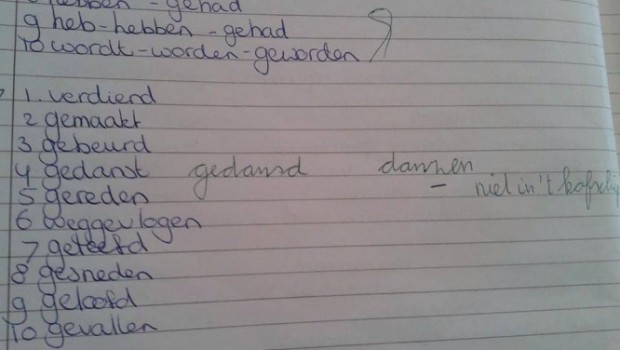 hebben - gehad
9 heb-hebben-gehad
10 wordt-worden-geworden
1. verdiend
2 gemaakt
3 gebeurd
4 gedanst gedansd dansen
niet in 't kofschip
5 gereden
6 weggevlogen
7 geleefd
8 gesneden
9 geloofd
10 gevallen